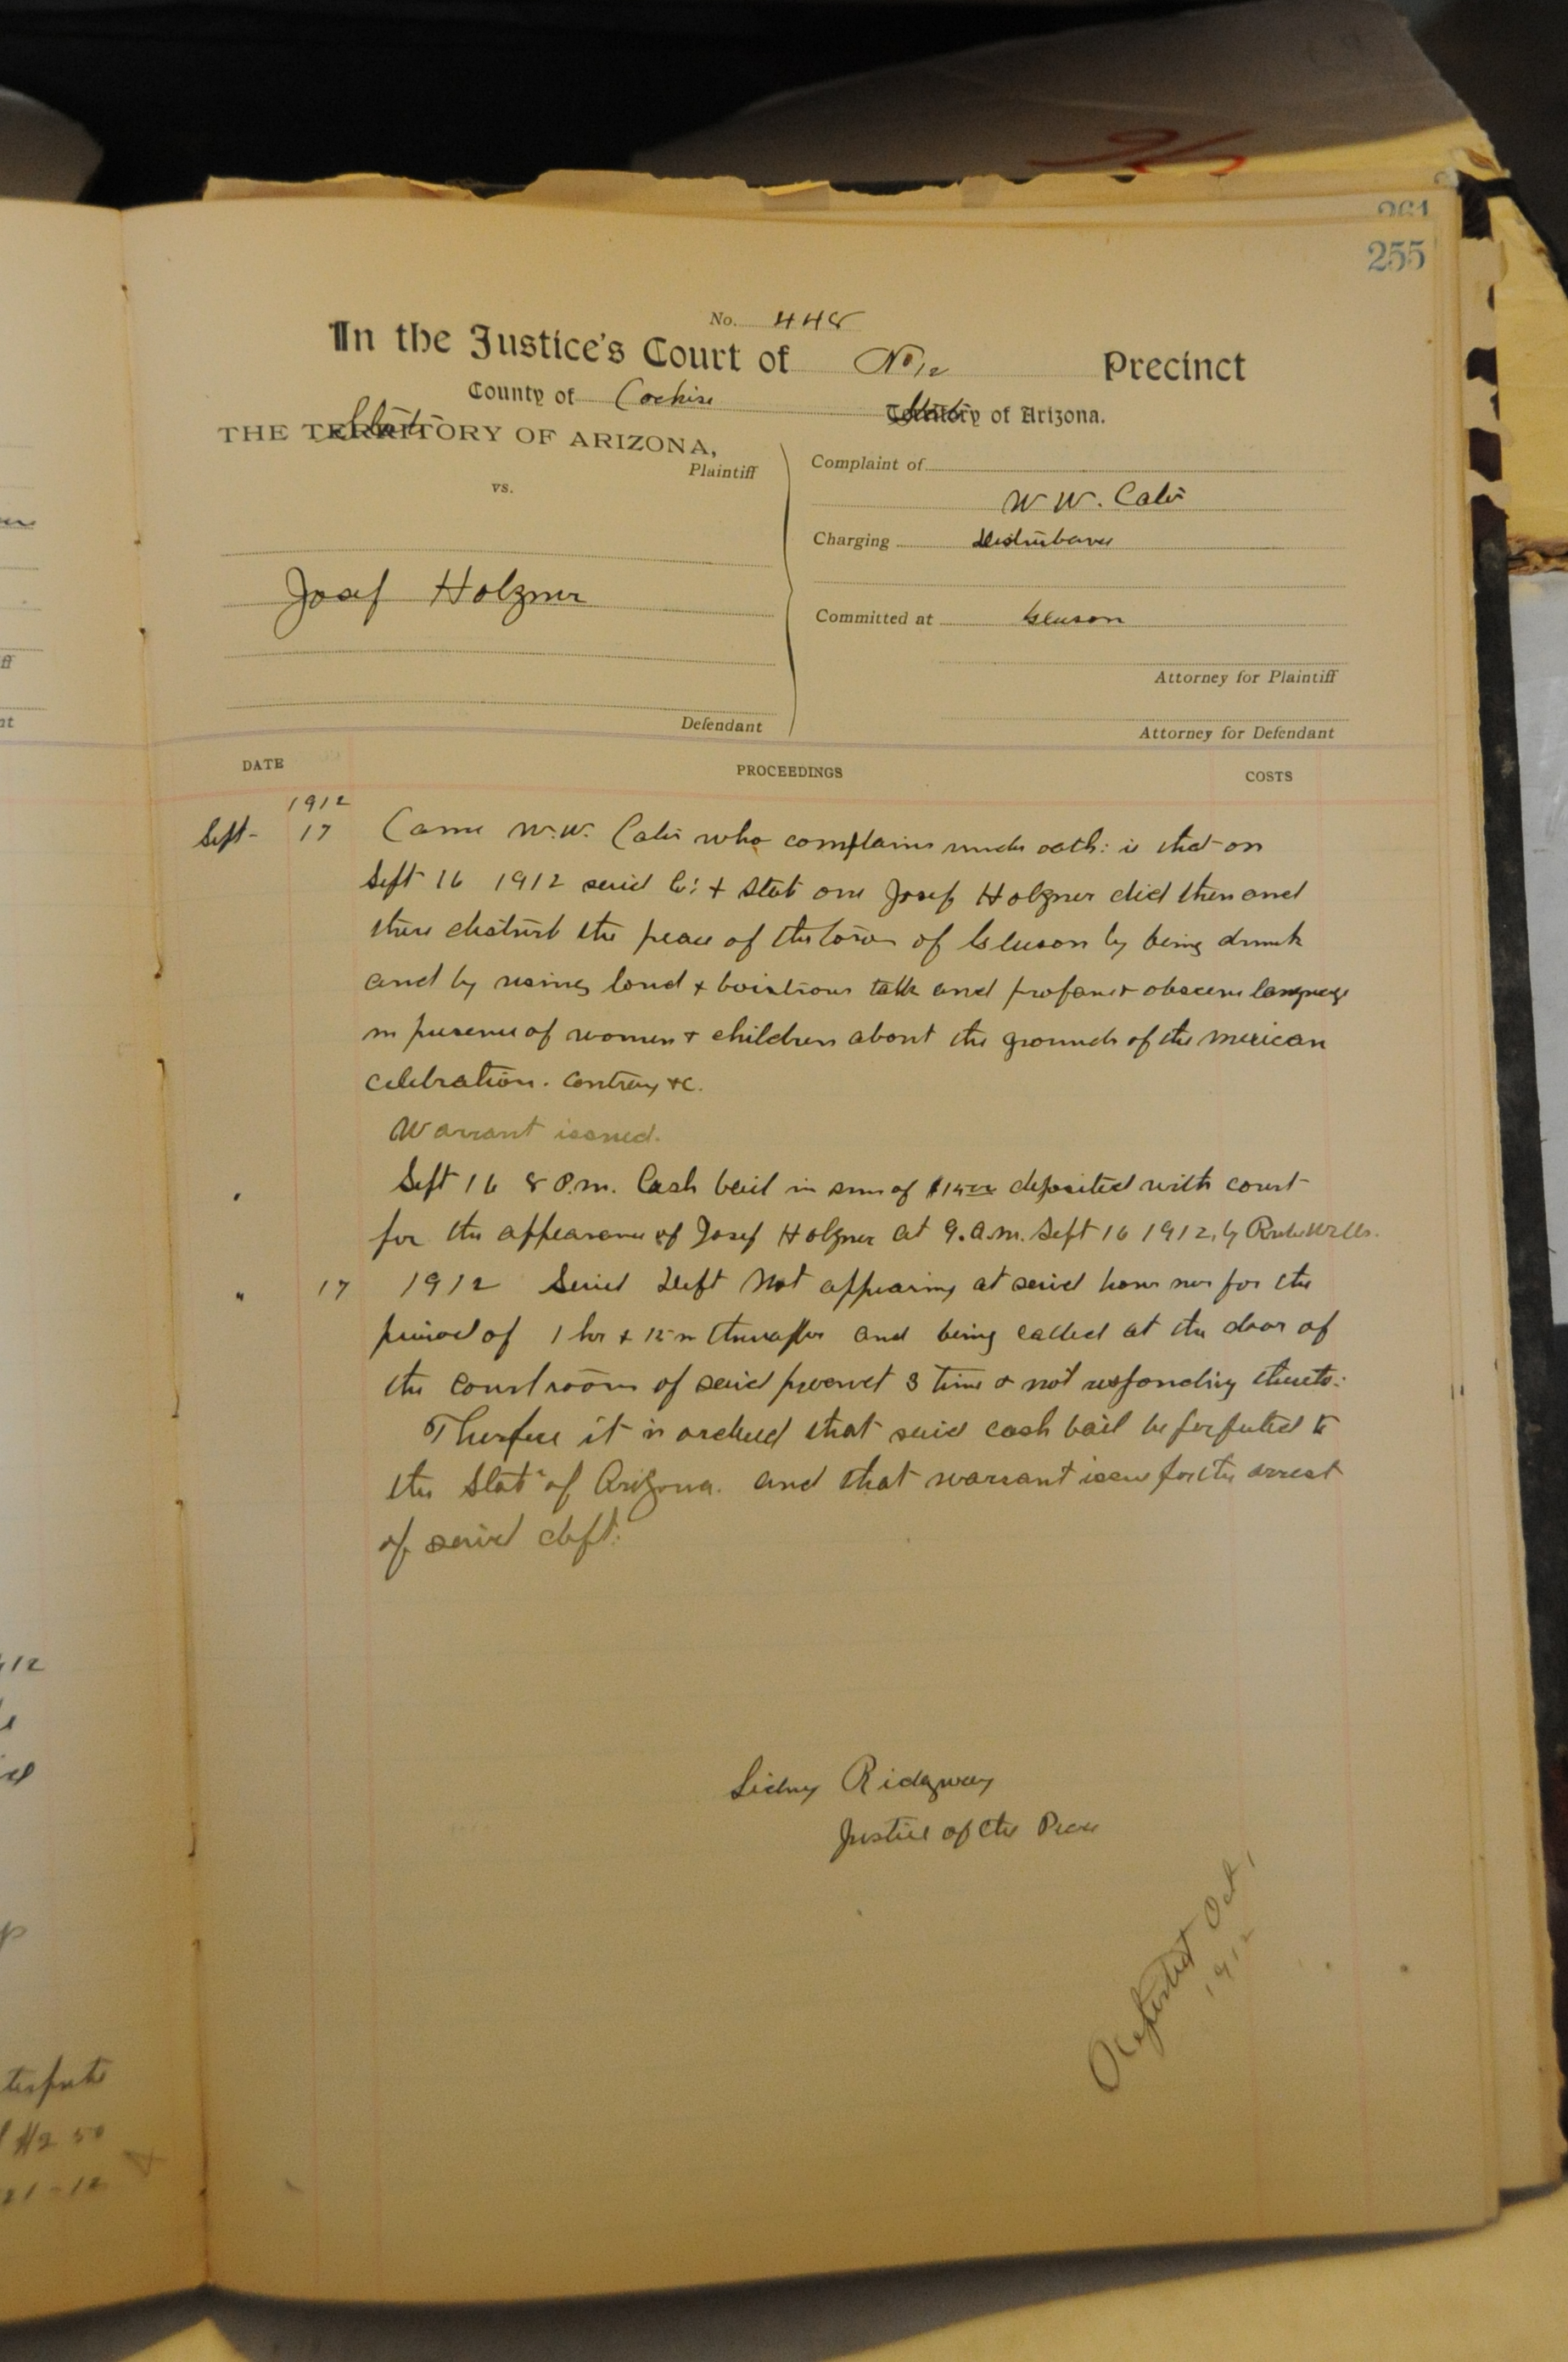 261
255
No. 448
In the Justice's Court of No 12 Precinct
County of Cochise State Territory of Arizona.
State
THE TERRITORY OF ARIZONA,
Plaintiff
vs.
Josef Holzner
Defendant
Complaint of
W. W. Cates
Charging Disturbance
Committed at Gleeson
Attorney for Plaintiff
Attorney for Defendant
DATE PROCEEDINGS COSTS
1912
Sept- 17 Came W.W. Cates who complains under oath: is that on
Sept 16 1912 said Co: + State one Josef Holzner did then and
there disturb the peace of the town of Gleeson by being drunk
and by using loud + boistrous talk and profane + obscene language
in presence of women + children about the grounds of the mexican
celebration. Contrary +c.
Warrant issued.
Sept 16 8 P.m. Cash bail in sum of deposited with court
for the appearance of Josef Holzner at 9.a.m. Sept 16 1912, by
" 17 1912 Said Deft Not appearing at said hour nor for the
period of 1 hr + 15 m thereafter and being called at the door of
the courtroom of said precinct 3 time + not responding thereto:
Therefore it is ordered that said cash bail be forfeited to
the State of Arizona. and that warrant issue for the arrest
of said deft.
Sidney Ridgway
Justice of the Peace
Reported Oct 1
1912
912
$2 50